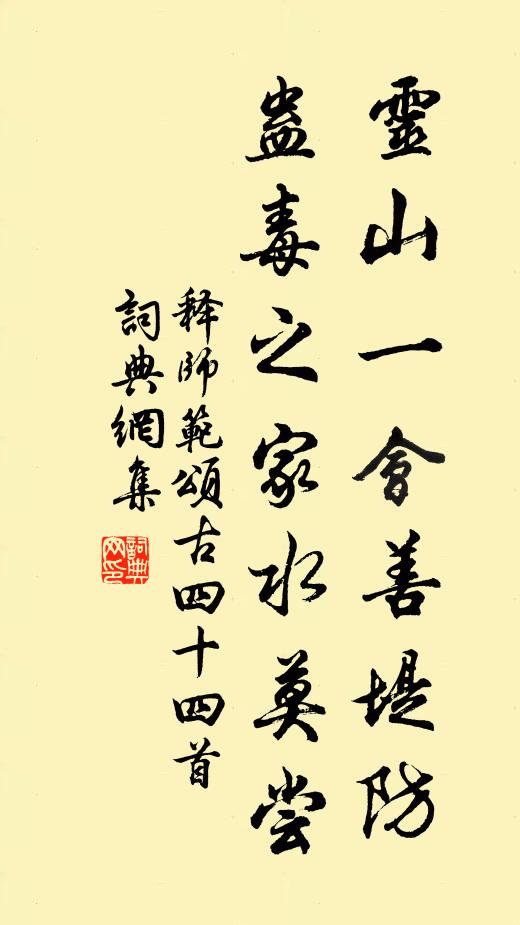 靈山一會善堤防
蛊毒之家水莫尝
释師範頌古四十四首
詞典網集
詞典网印